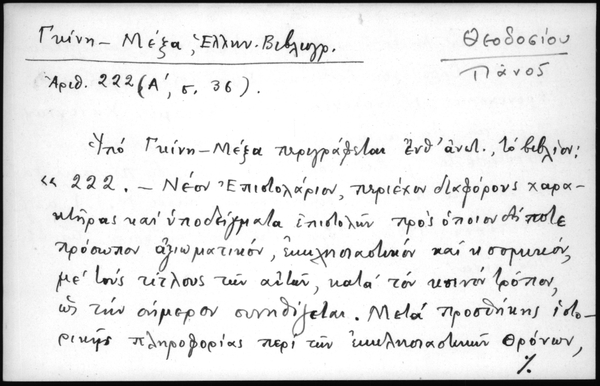 Γκίνη – Μέξα, Ἑλλην. Βιβλιογρ.
Θεοδοσίου
Πάνος
Ἀριθ. 222 (Α΄, σ. 36).
Ὑπὸ Γκίνη – Μέξα περιγράφεται ἐνθ' ἀνωτ., τὸ βιβλίον:
«222. – Νέον Ἐπιστολάριον, περιέχον διαφόρους χαρα-
κτῆρας καὶ ὑποδείγματα ἐπιστολῶν πρὸς ὁποιονδήποτε
πρόσωπον ἀξιωματικόν, ἐκκλησιαστικόν καὶ κοσμικόν,
μὲ τοὺς τίτλους τῶν αὐτῶν, κατὰ τὸν κοινὸν τρόπον,
ὡς τὴν σήμερον συνηθίζεται. Μετὰ προσθήκης ἱστο-
ρικῆς πληροφορίας περὶ τῶν ἐκκλησιαστικῶν θρόνων,
./.